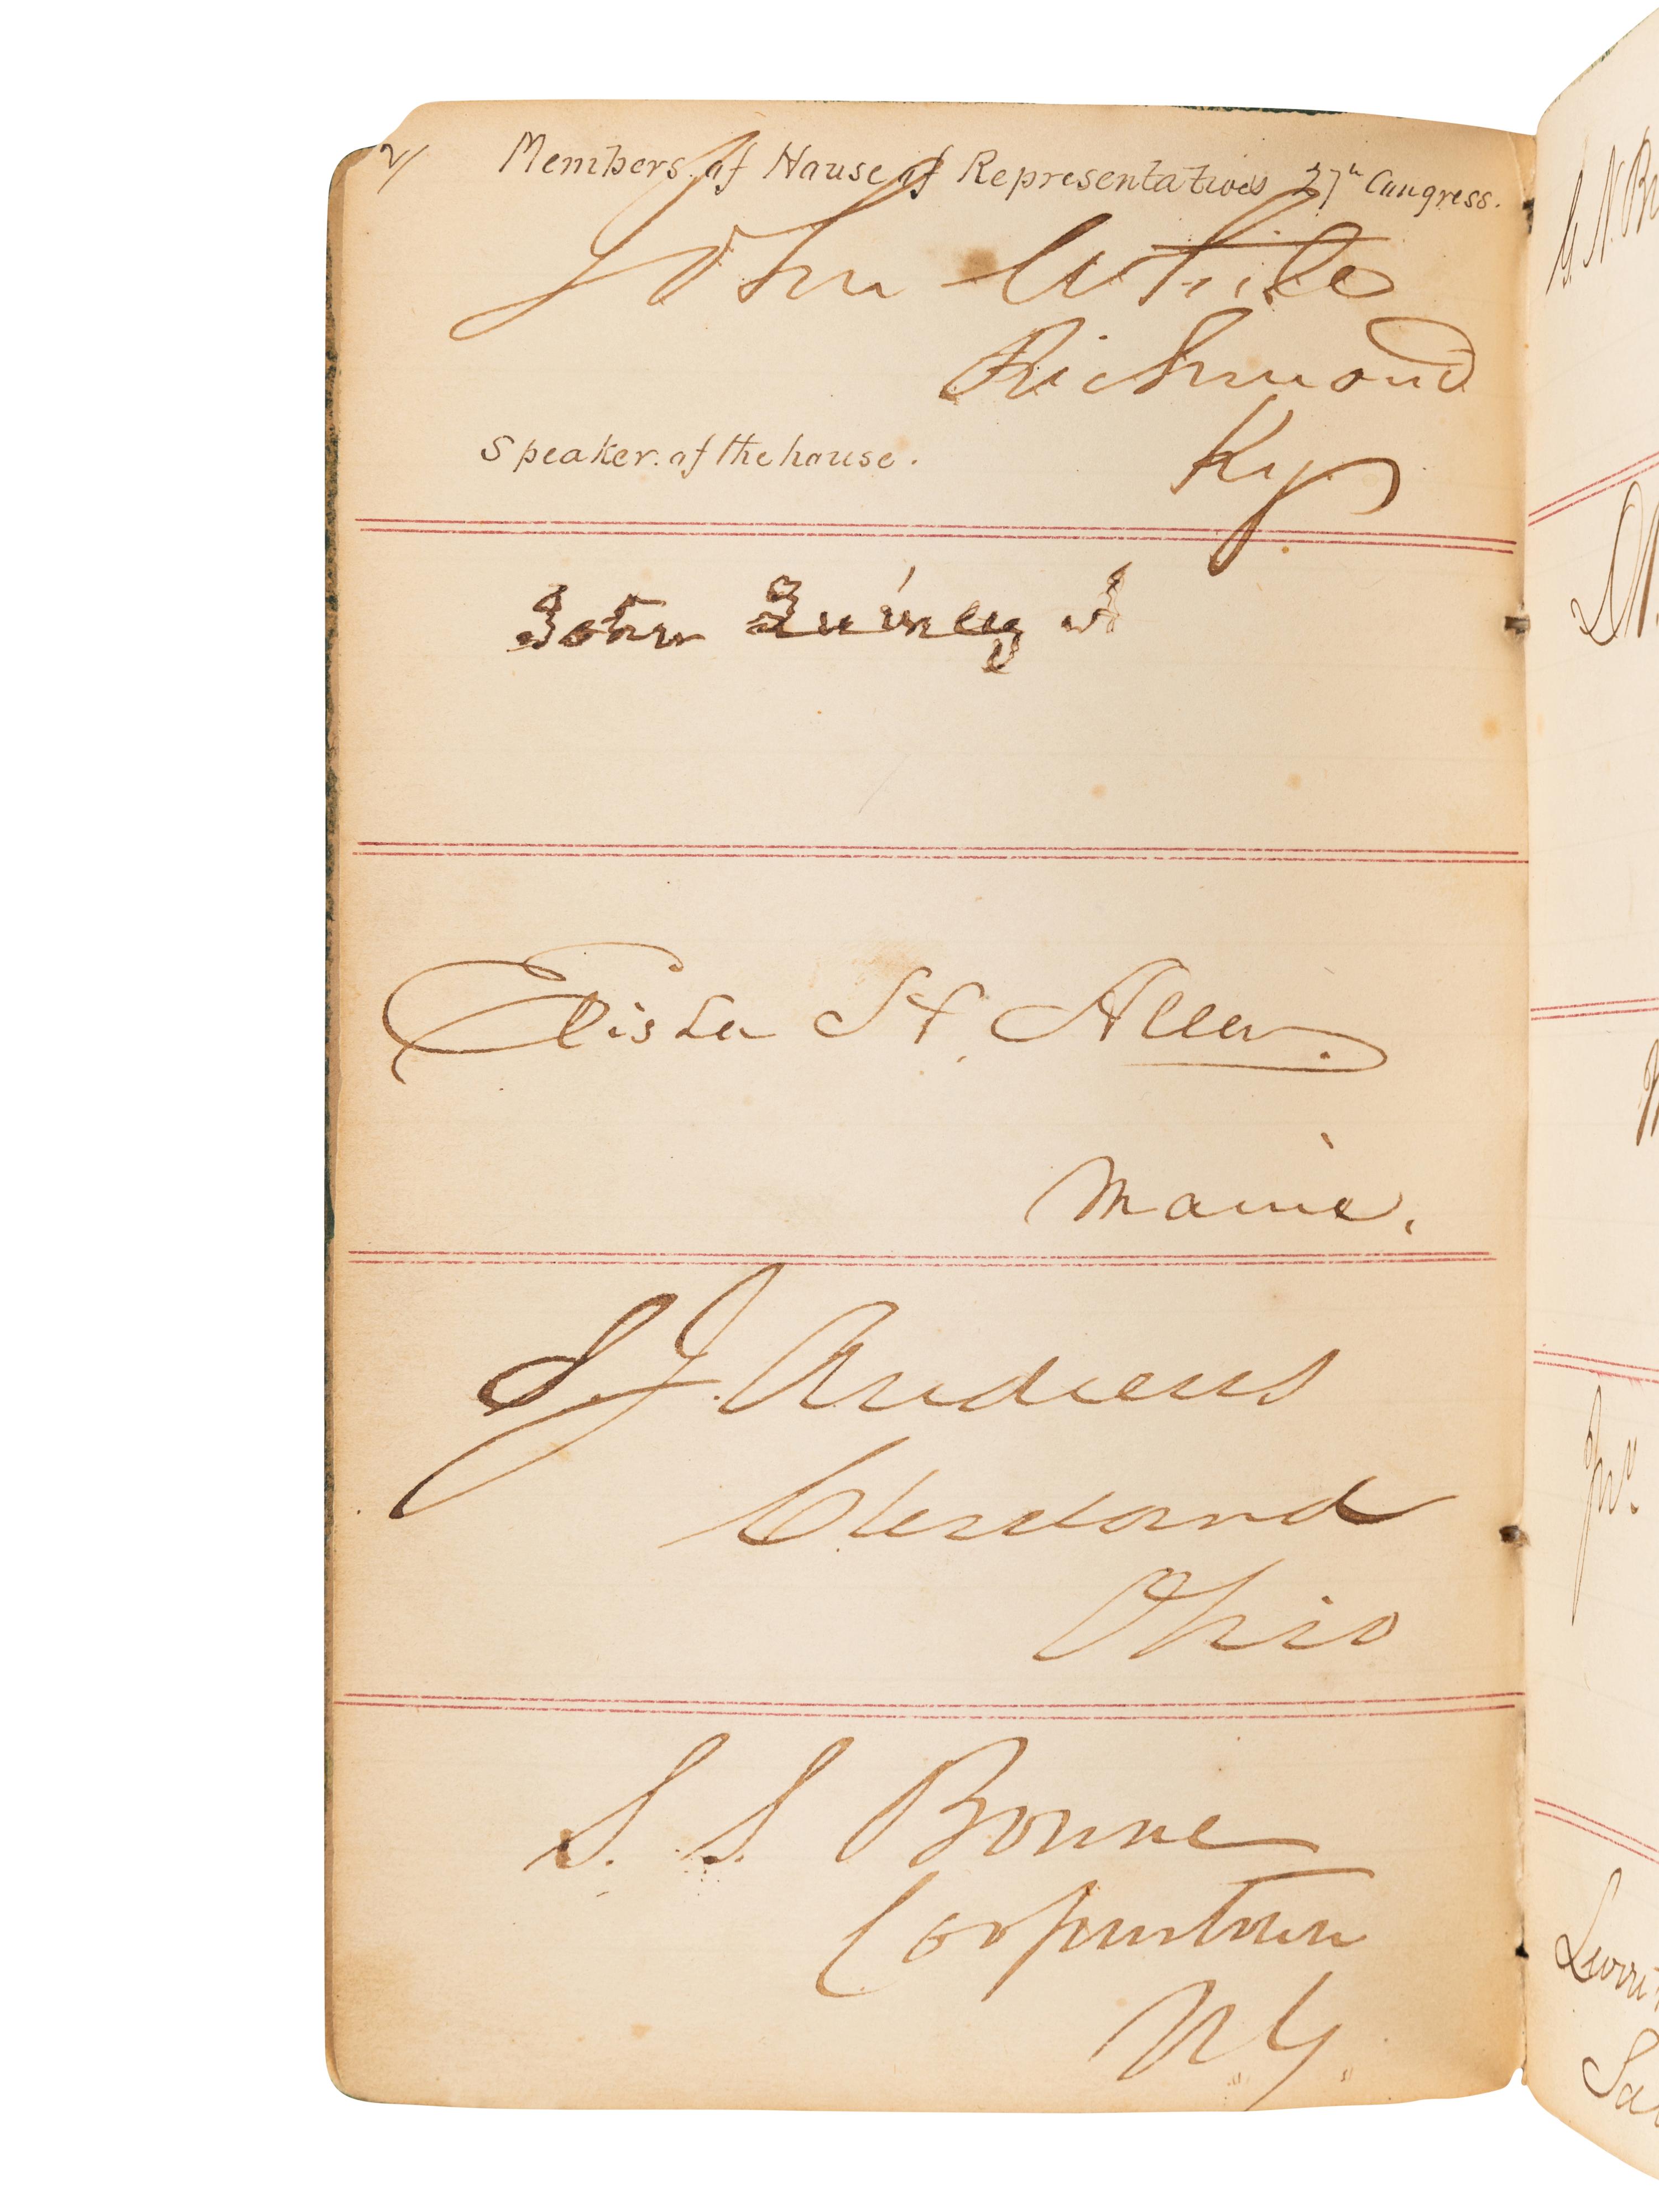 2/ Members of House of Representatives 27th Congress.
John White
Richmond
Ky
Speaker of the house.
John Quincy A
Elisha H. Allen.
Maine.
S. J. Andrews
Cleveland
Ohio
S. S. Bowne
Cooperstown
N.Y.